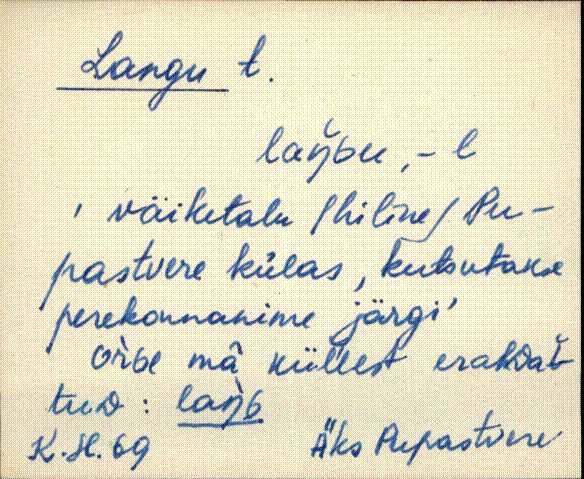 Langu t.
laŋ̆Gu, -l
' väiketalu /hiline/ Pu-
pastvere külas, kutsutakse
perekonnanime järgi'
mā küllest
laŋ̀G
K.H. 69 Äks Pupastvere